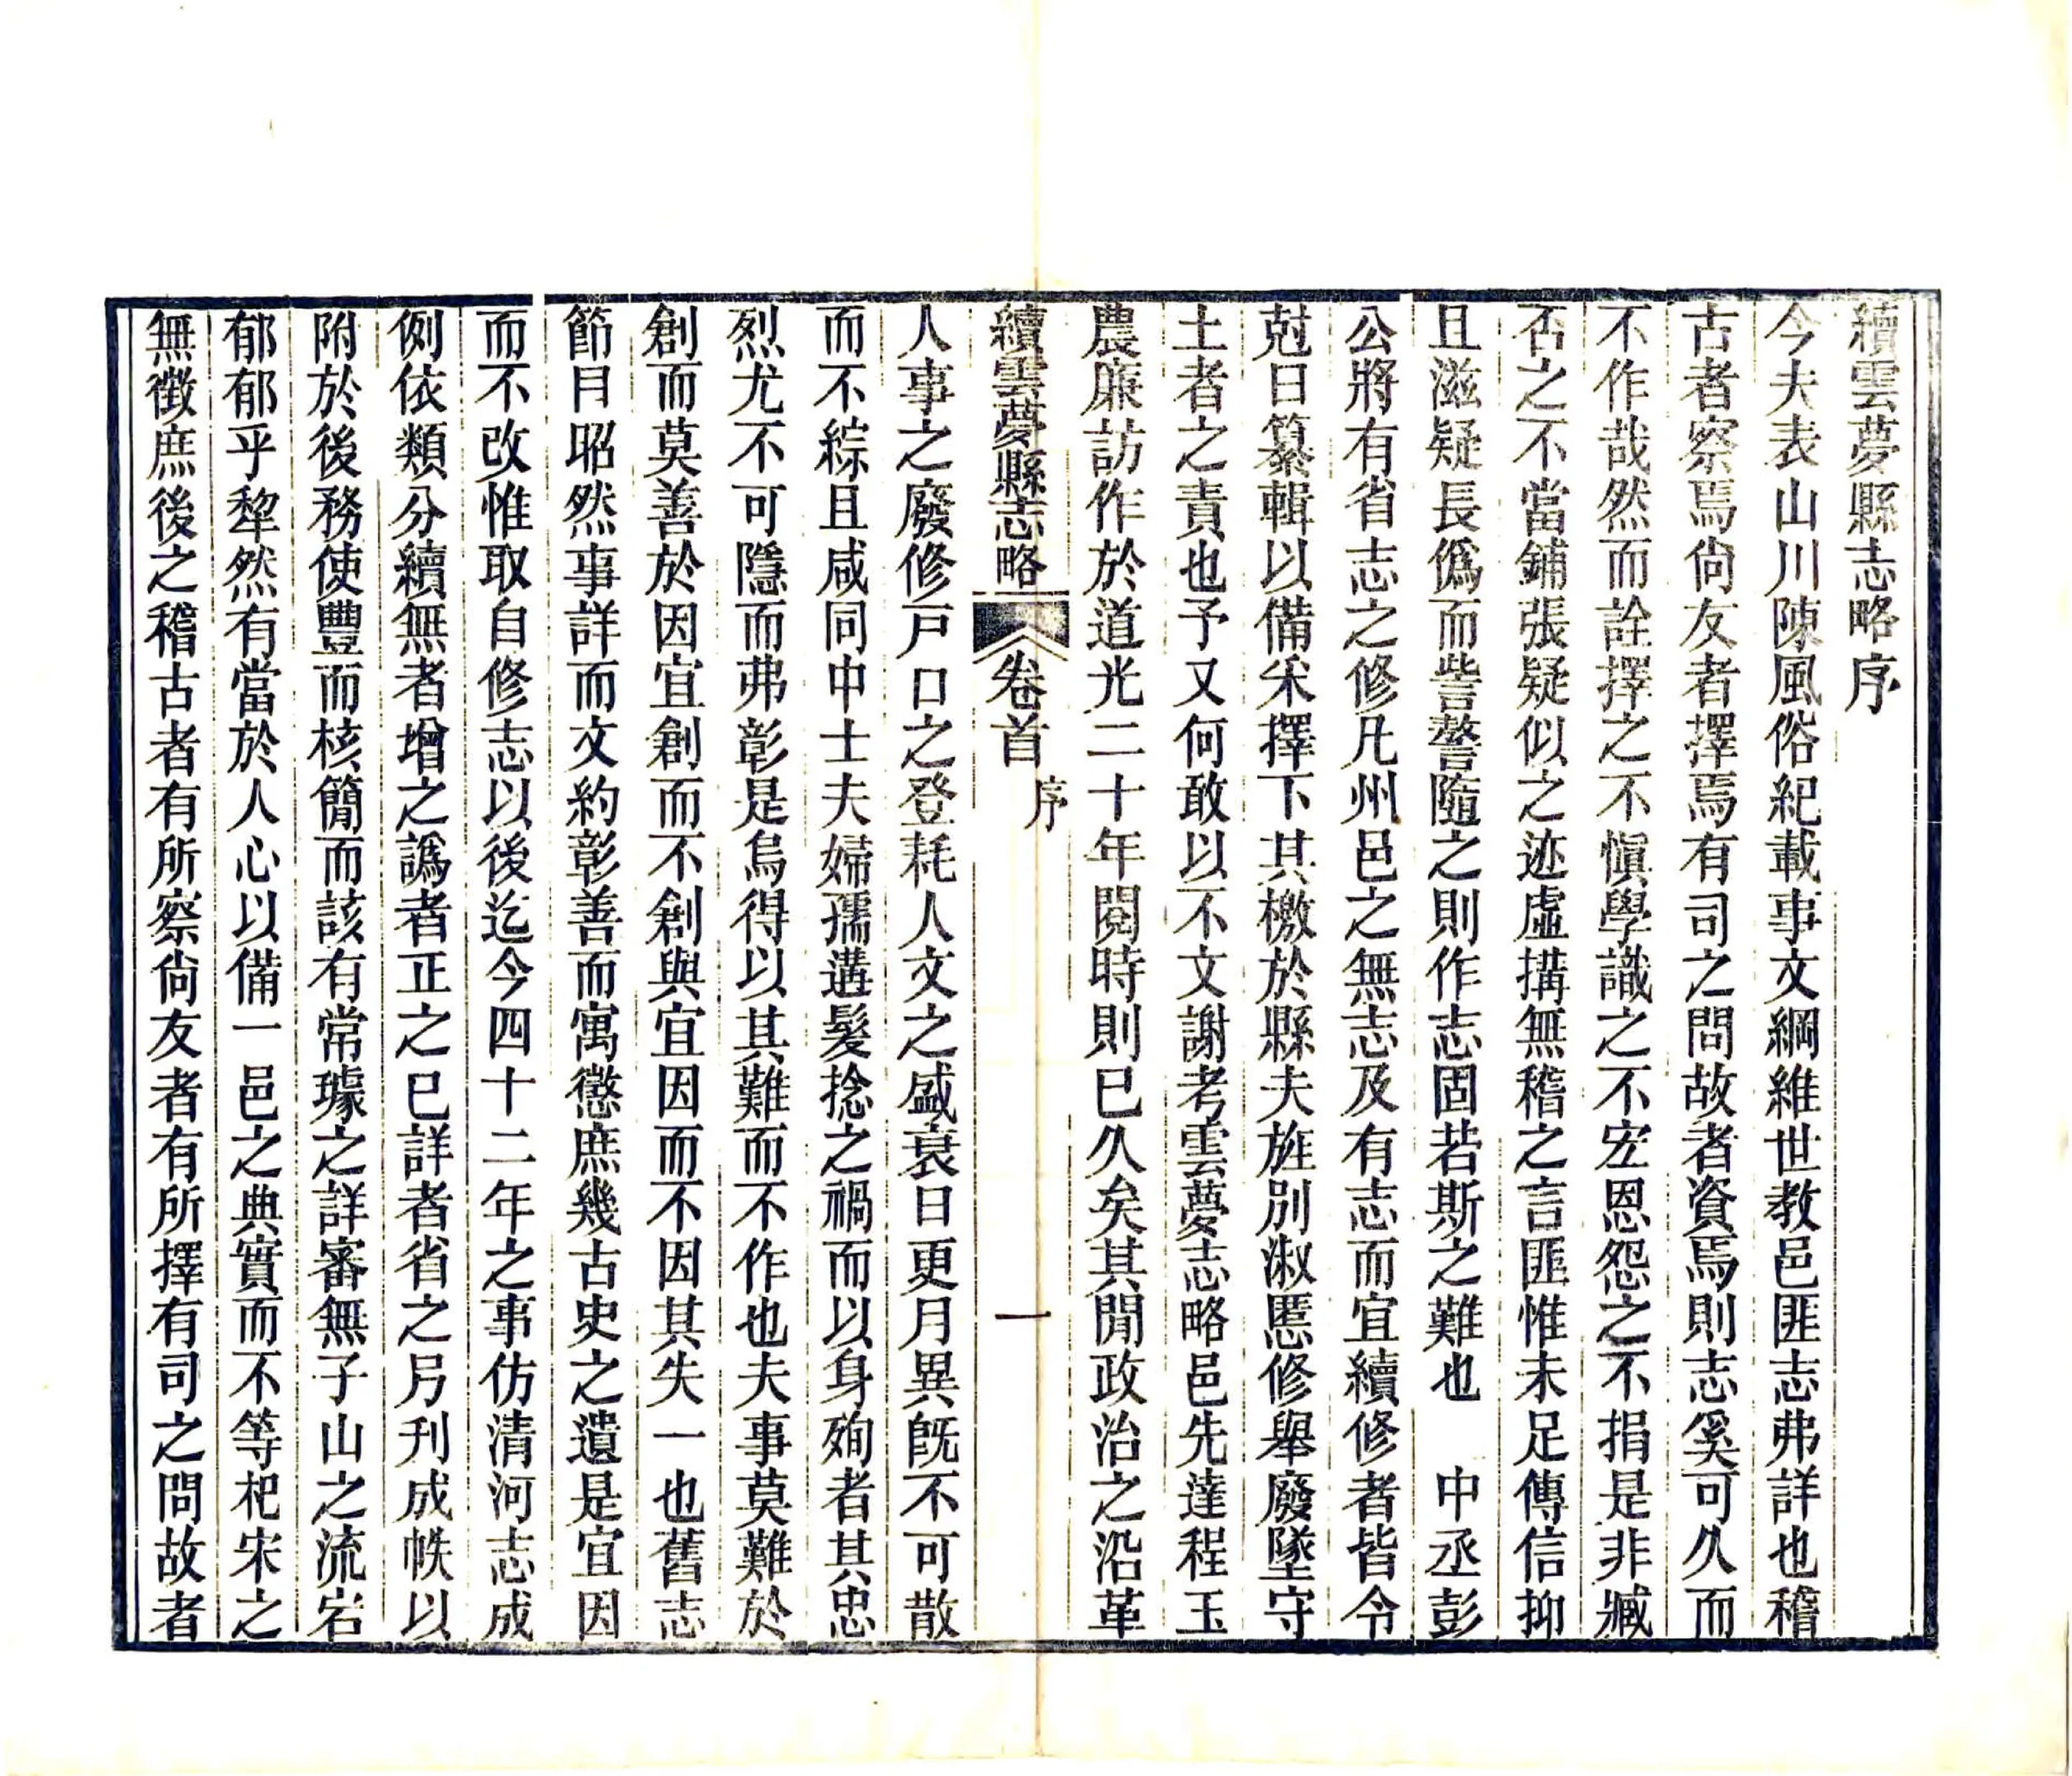 續雲夢縣志略序
今夫表山川陳風俗紀載事文綱維世教邑匪志弗詳也稽
古者察焉尙友者擇焉有司之問故者資焉則志奚可久而
不作哉然而詮擇之不愼學識之不宏恩怨之不捐是非臧
否之不當鋪張疑似之迹虛搆無稽之言匪惟未足傳信抑
且滋疑長僞而訾謷隨之則作志固若斯之難也　中丞彭
公將有省志之修凡州邑之無志及有志而宜續修者皆令
尅日纂輯以備釆擇下其檄於縣夫旌別淑慝修舉廢墜守
土者之責也予又何敢以不文謝考雲夢志略邑先達程玉
農廉訪作於道光二十年閱時則已久矣其閒政治之沿革
續雲夢縣志略　卷首　序　一
人事之廢修戸口之登耗人文之盛衰日更月異旣不可散
而不綜且咸同中士夫婦孺遘髮捻之禍而以身殉者其忠
烈尤不可隱而弗彰是烏得以其難而不作也夫事莫難於
創而莫善於因宜創而不創與宜因而不因其失一也舊志
節目昭然事詳而文約彰善而寓懲庶幾古史之遺是宜因
而不改惟取自修志以後迄今四十二年之事仿清河志成
例依類分續無者增之譌者正之已詳者省之另刋成帙以
附於後務使豐而核簡而該有常璩之詳審無子山之流宕
郁郁乎犂然有當於人心以備一邑之典實而不等杞宋之
無徵庶後之稽古者有所察尙友者有所擇有司之問故者